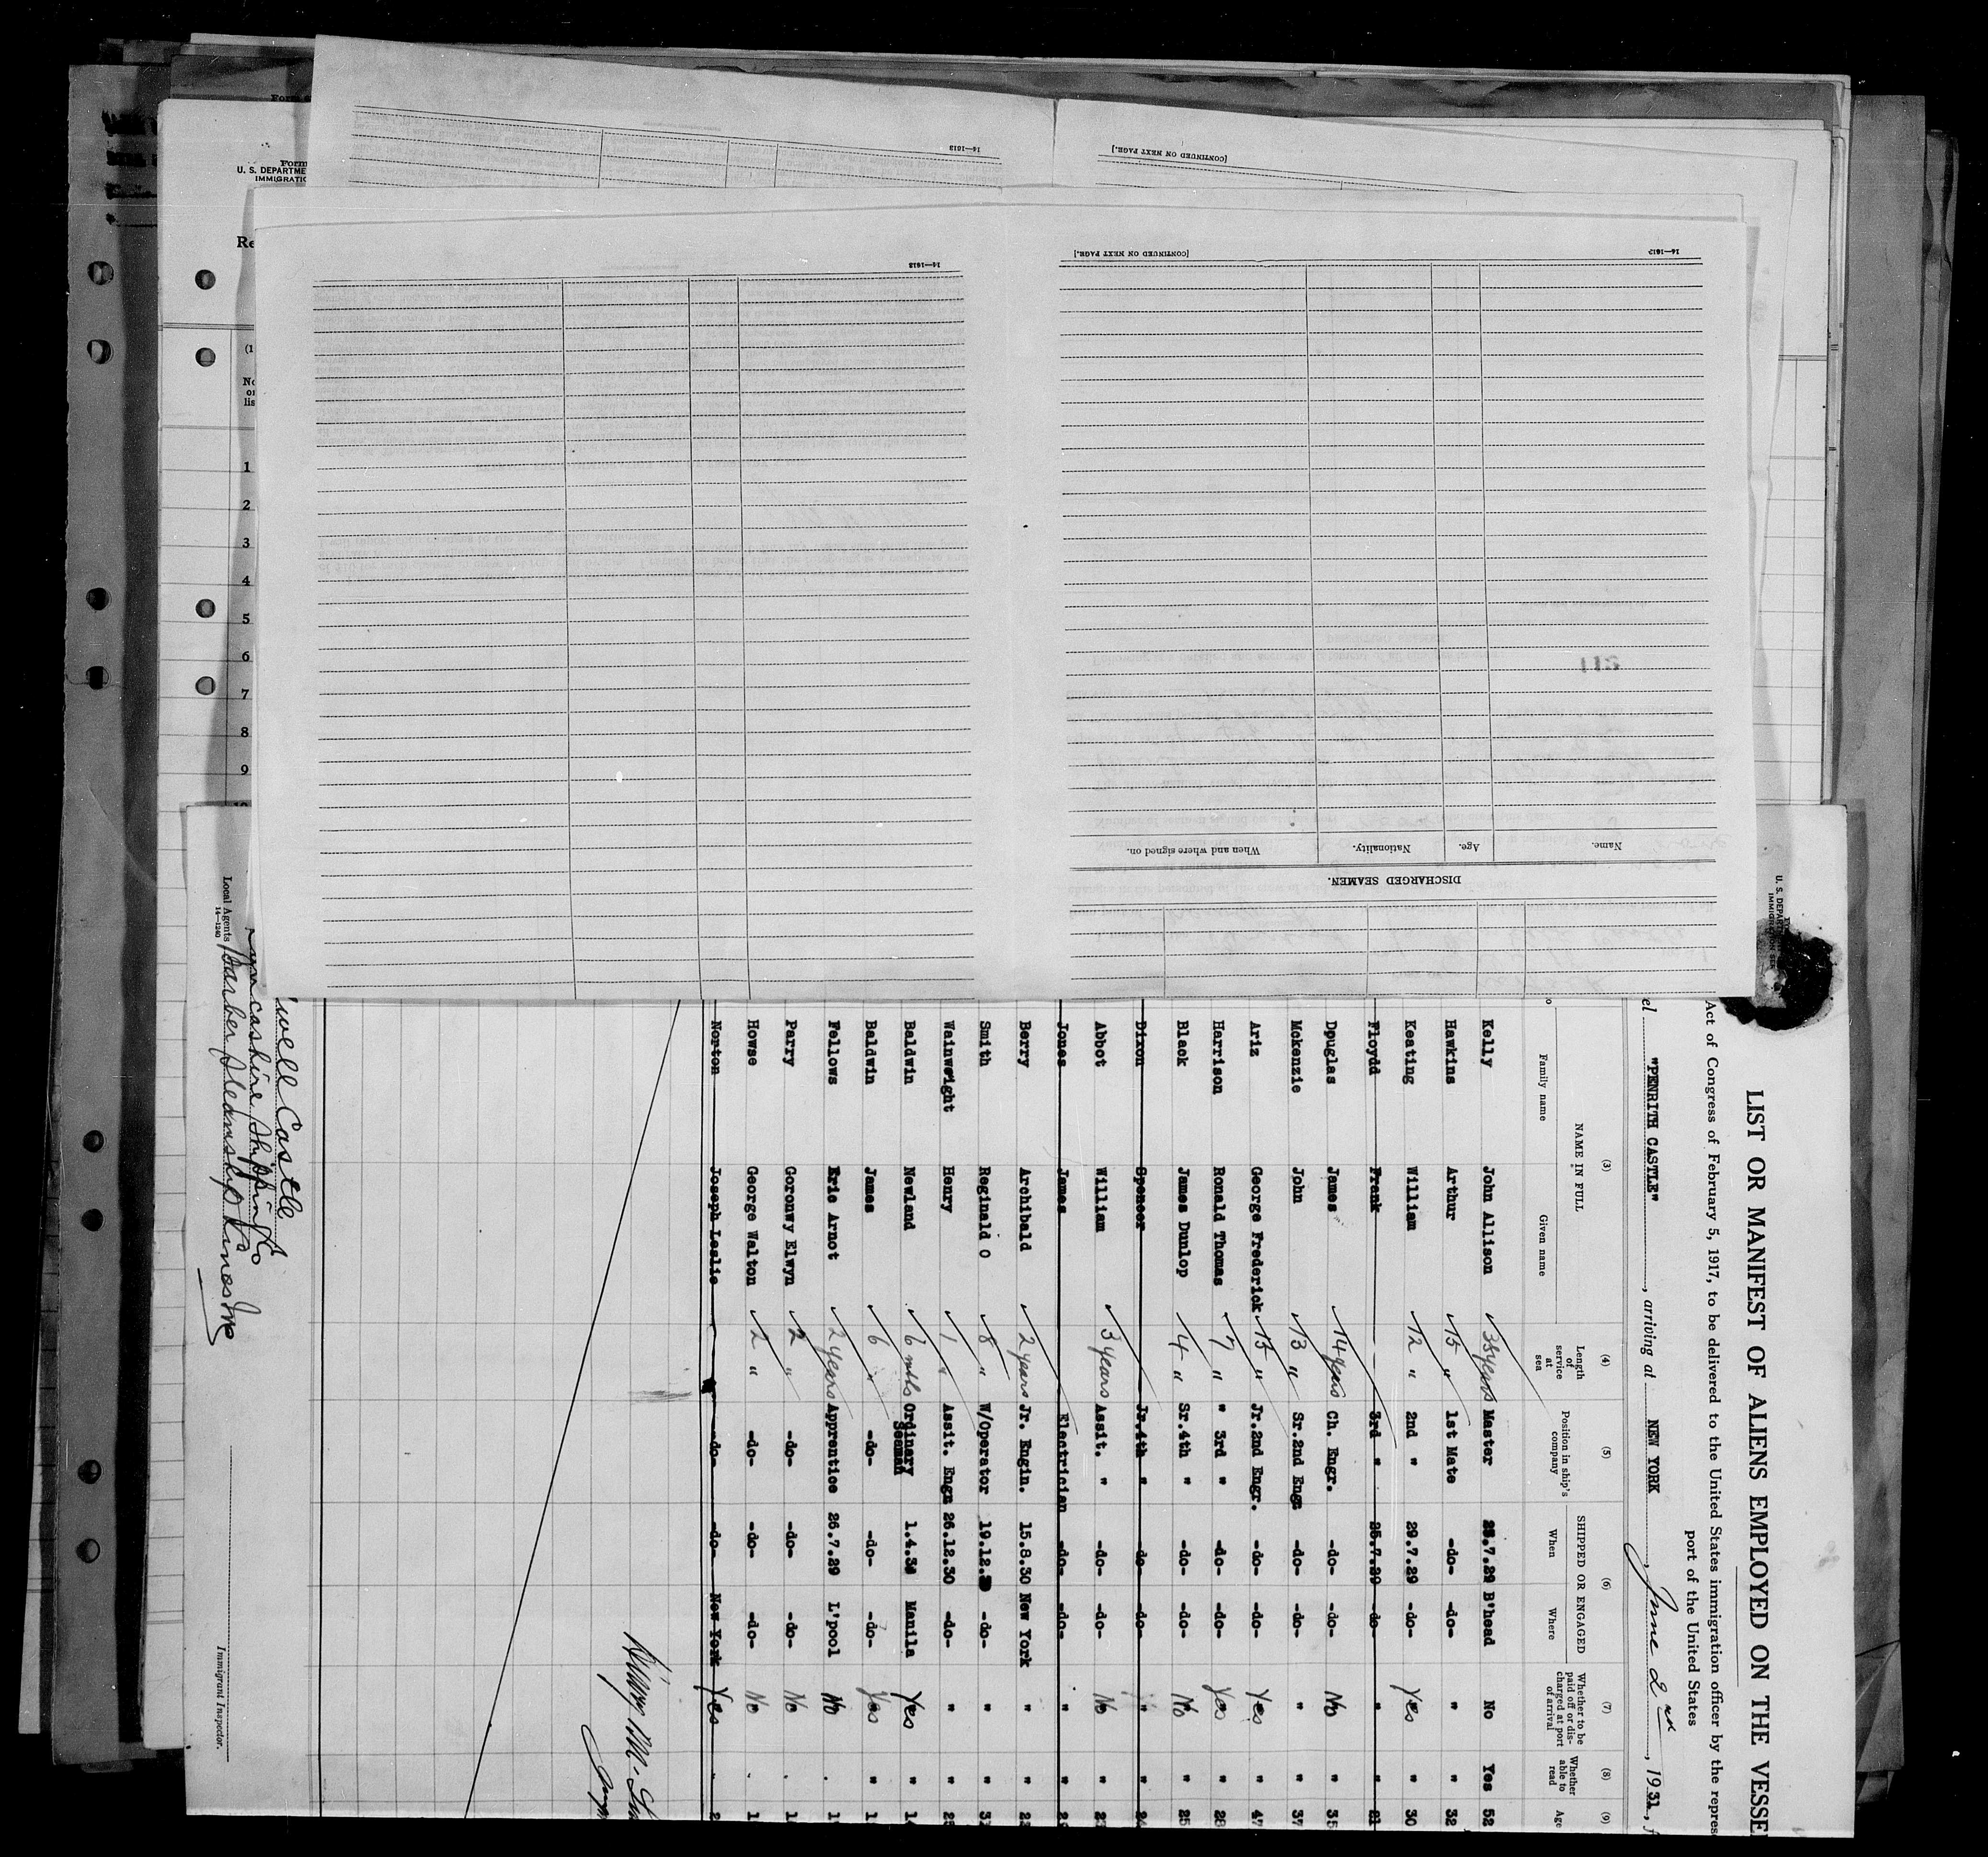 Form
U. S. DEPARTME
IMMIGRATIO
Re
(1
No
on
lis
1
2
3
4
5
6
7
8
9
10
14—1613
[CONTINUED ON NEXT PAGE.]
14—1613
[CONTINUED ON NEXT PAGE.]
14—1613
Name.
Age.
Nationality.
When and where signed on.
DISCHARGED SEAMEN.
211
U. S. DEPART
IMMIGRATION SER
LIST OR MANIFEST OF ALIENS EMPLOYED ON THE VESSE
Act of Congress of February 5, 1917, to be delivered to the United States immigration officer by the repres
port of the United States
el "PENRITH CASTLE", arriving at NEW YORK, June 2nd, 1931, f
(3) (4) (5) (6) (7) (8) (9)
NAME IN FULL
Family name
Given name
Length of service at sea
Position in ship's company
SHIPPED OR ENGAGED
When
Where
Whether to be paid off or discharged at port of arrival
Whether able to read
Age
Kelly John Allison 35 years Master 25.7.29 B'head No Yes 52
Hawkins Arthur 15 " 1st Mate -do- -do- " " 32
Keating William 12 " 2nd " 29.7.29 -do- Yes " 30
Floyd Frank 3rd " 25.7.29 -do- " " 21
Dpuglas James 14 years Ch. Engr. -do- -do- No " 35
Mckenzie John 13 " Sr.2nd Engr -do- -do- " " 37
Ariz George Frederick 15 " Jr.2nd Engr. -do- -do- Yes " 47
Harrison Ronald Thomas 7 " " 3rd " -do- -do- Yes " 28
Black James Dunlop 4 " Sr.4th " -do- -do- No " 25
Dixon Spencer Jr.4th " -do- -do- " " 24
Abbot William 3 years Assit. " -do- -do- No " 23
Jones James Electrician -do- -do- " "
Berry Archibald 2 years Jr. Engin. 15.8.30 New York " "
Smith Reginald O 8 " W/Operator 19.12. -do- " "
Wainwright Henry 1 " Assit. Engn 26.12.30 -do- " "
Baldwin Newland 6 mths Ordinary Seaman 1.4.31 Manila Yes "
Baldwin James 6 " -do- -do- -do- Yes "
Fellows Eric Arnot 2 years Apprentice 26.7.29 L'pool No
Parry Goronwy Elwyn 2 " -do- -do- -do- No
Howse George Walton 2 " -do- -do- -do- No
Norton Joseph Leslie -do- -do- New York Yes
well Castle
Lancashire Shipping Co
Local Agents Barber Steamship Lines Inc
14—1240
Immigrant Inspector.